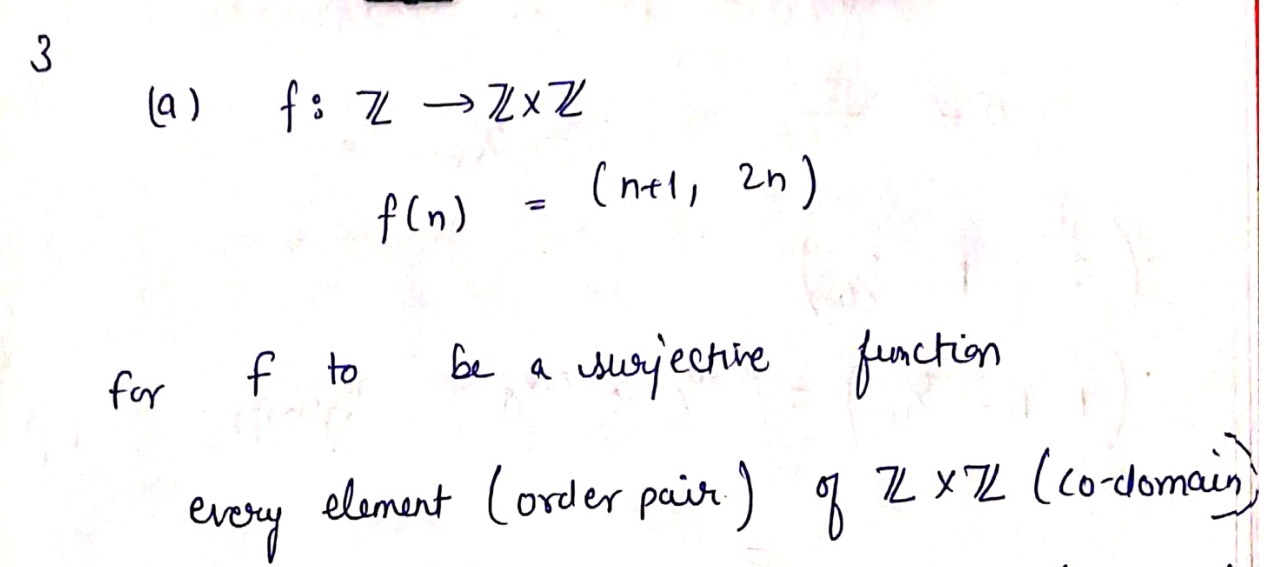 3
(a) f: ℤ → ℤ×ℤ
f(n) = (n+1, 2n)
for f to be a surjective function
every element (order pair) of ℤ×ℤ (co-domain)